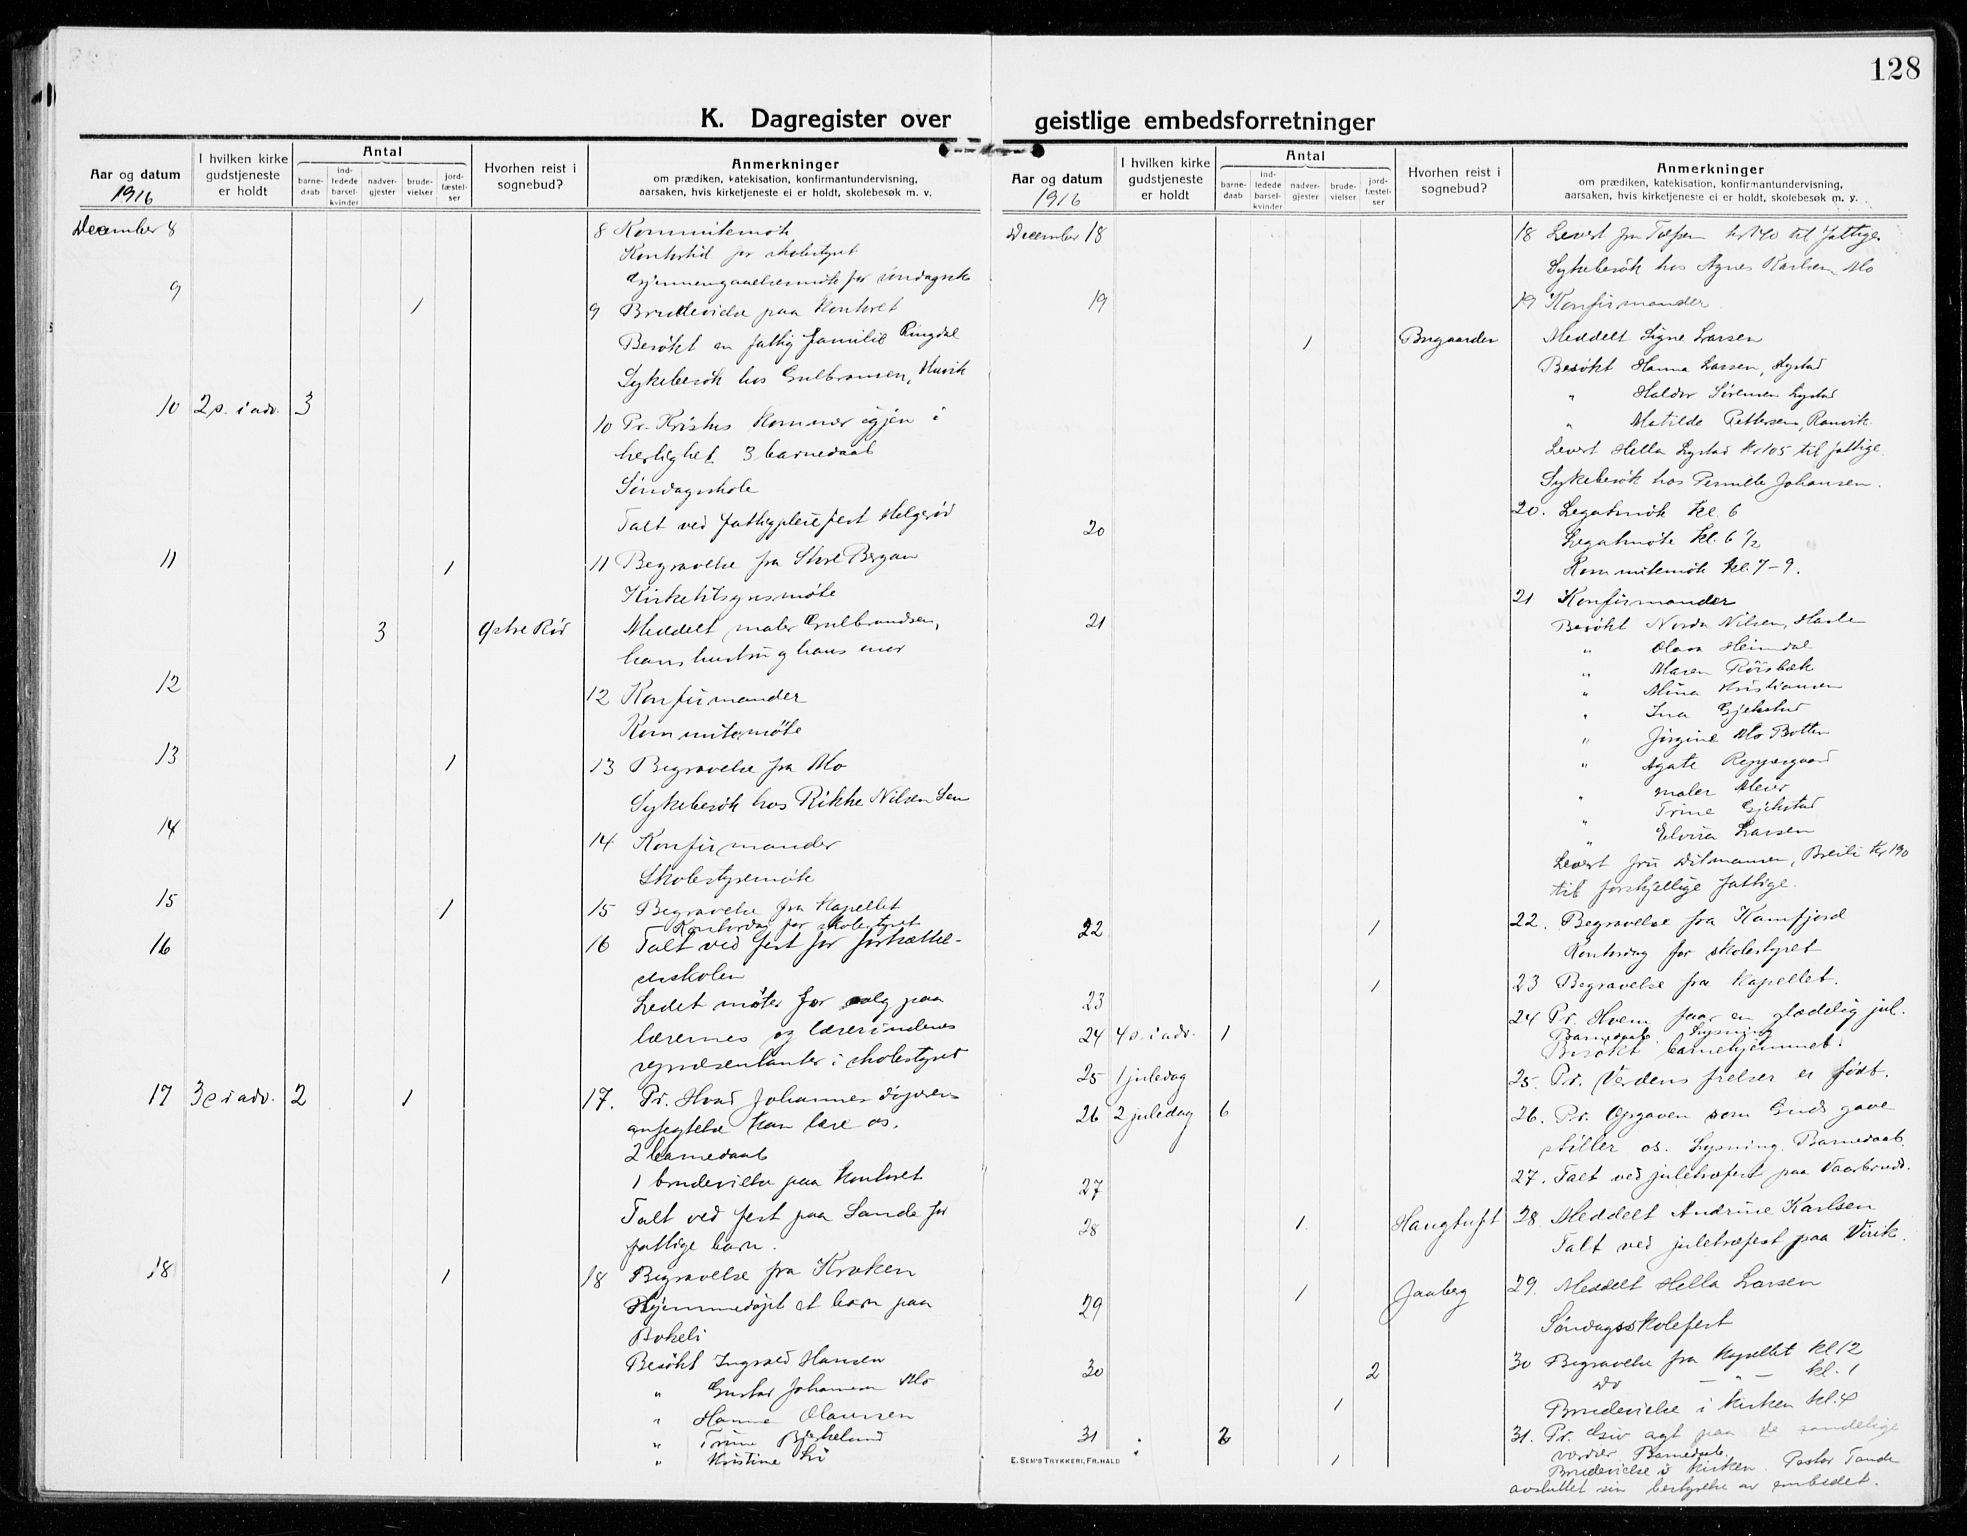 128
K. Dagregister over geistlige embedsforretninger
Aar og datum
1916
I hvilken kirke gudstjeneste er holdt
Antal
barnedaab
indledede barselkvinder
nadvergjester
brudevielser
jordfæstelser
Hvorhen reist i sognebud?
Anmerkninger
om prædiken, katekisation, konfirmantundervisning,
aarsaken, hvis kirketjeneste ei er holdt, skolebesøk m. v.
December 8 8 Kommitemøte
Kontortid for skolestyret
Gjennemgaaelsesmøte for søndagssk
9 1 9 Brudevielse paa kontoret
Besøkt en fattig familie Ringdal
Sykebesøk hos Gulbransen,
10 2 s. i adv. 3 10 Pr. Kristus kommer igjen i
herlighet 3 barnedaab
Søndagsskole
Talt ved fattigpleiefest Helgerød
11 1 11 Begravelse fra Store Bergan
Kirketilsynsmøte
3 Østre Rød Meddelt maler Gulbrandsen,
hans hustru og hans mor
12 12 Konfirmander
Kommitemøte
13 1 13 Begravelse fra Mo
Sykebesøk hos Rikke Nilsen
14 14 Konfirmander
Skolestyremøte
15 1 15 Begravelse fra kapellet
Kontordag for skolestyret
16 16 Talt ved fest for fortsættel-
sesskolen
Ledet møter for valg paa
lærernes og lærerindenes
repræsentanter i skolestyret
17 3 s i adv. 2 1 17. Pr. Hvad Johannes døperens
anfegtelse kan lære os.
2 barnedaab
1 brudevielse paa kontoret
Talt ved fest paa Sande for
fattige barn.
18 1 18 Begravelse fra Kroken
Hjemmedøpt et barn paa
Bokeli
Besøkt Ingvald Hansen
" Gustav Johansen Mo
" Hanna Olaussen
" Trine Bjerkelund
" Kristine
Aar og datum
1916
I hvilken kirke gudstjeneste er holdt
Antal
barnedaab
indledede barselkvinder
nadvergjester
brudevielser
jordfæstelser
Hvorhen reist i sognebud?
Anmerkninger
om prædiken, katekisation, konfirmantundervisning,
aarsaken, hvis kirketjeneste ei er holdt, skolebesøk m. v.
December 18 18 Levert fra kr 190 til fattige
Sykebesøk hos Agnes Karlsen, Mo
19 19 Konfirmander
1 Bugaarden Meddelt Signe Larsen
Besøkt Hanna Larsen, Lystad
" Haldor Sørensen Lystad
" Matilde Pettersen, Ranvik
Levert Hella Lystad kr 105 til fattige.
Sykebesøk hos Pernille Johansen.
20 20. Legatmøte kl. 6
Legatmøte kl. 6 1/2
Kommitemøte kl. 7-9.
21 21 Konfirmander
Besøkt Norda Nilsen, Hasle
" Olava Heimdal
" Maren Röisbæk
" Mina Kristiansen
" Ina Gjekstad
" Jørgine Mo Botten
" Agate
" maler Meier
Trine Gjekstad
" Elvira Larsen
Levert fru Ditmansen, Breili kr 190
til forskjellige fattige.
22 1 22. Begravelse fra Kamfjord
Kontordag for skolestyret
23 1 23 Begravelse fra kapellet.
24 4 s. i adv. 1 24 Pr. Hvem faar en glædelig jul.
Barnedaab. Lysning
Besøkt barnehjemmet.
25 1 juledag 25. Pr. Verdens frelser er født.
26 2 juledag 6 26. Pr. Opgaven som Guds gave
stiller os. Lysning. Barnedaab
27 27. Talt ved juletræfest paa
28 1 Haugtuft 28. Meddelt Andrine Karlsen
Talt ved juletræfest paa Virik.
29 1 Jaaberg 29. Meddelt Hella Larsen
Søndagsskolefest
30 2 30 Begravelse fra kapellet kl 12
Do — " — kl. 1
1 Brudevielse i kirken kl. 4
31 2 31. Pr. Giv agt paa de sandelige
værdier Barnedaab.
1 Brudevielse i kirken. Pastor Tande
avsluttet sin bestyrelse av embedet.
E. SEM'S TRYKKERI, FR.HALD